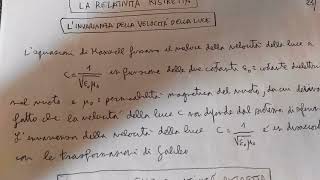 LA RELATIVITÀ RISTRETTA
L'INVARIANZA DELLA VELOCITÀ DELLA LUCE
L'equazioni di Maxwell fissano il valore della velocità della luce a
c = 1/√ε₀μ₀ in funzione delle due costanti ε₀ = costante dielettrica
nel vuoto e μ₀ = permeabilità magnetica del vuoto, da cui deriva
fatto che la velocità della luce c non dipende dal sistema di rifer
L'invarianza della velocità della luce c = 1/√ε₀μ₀ è in
con le trasformazioni di Galileo